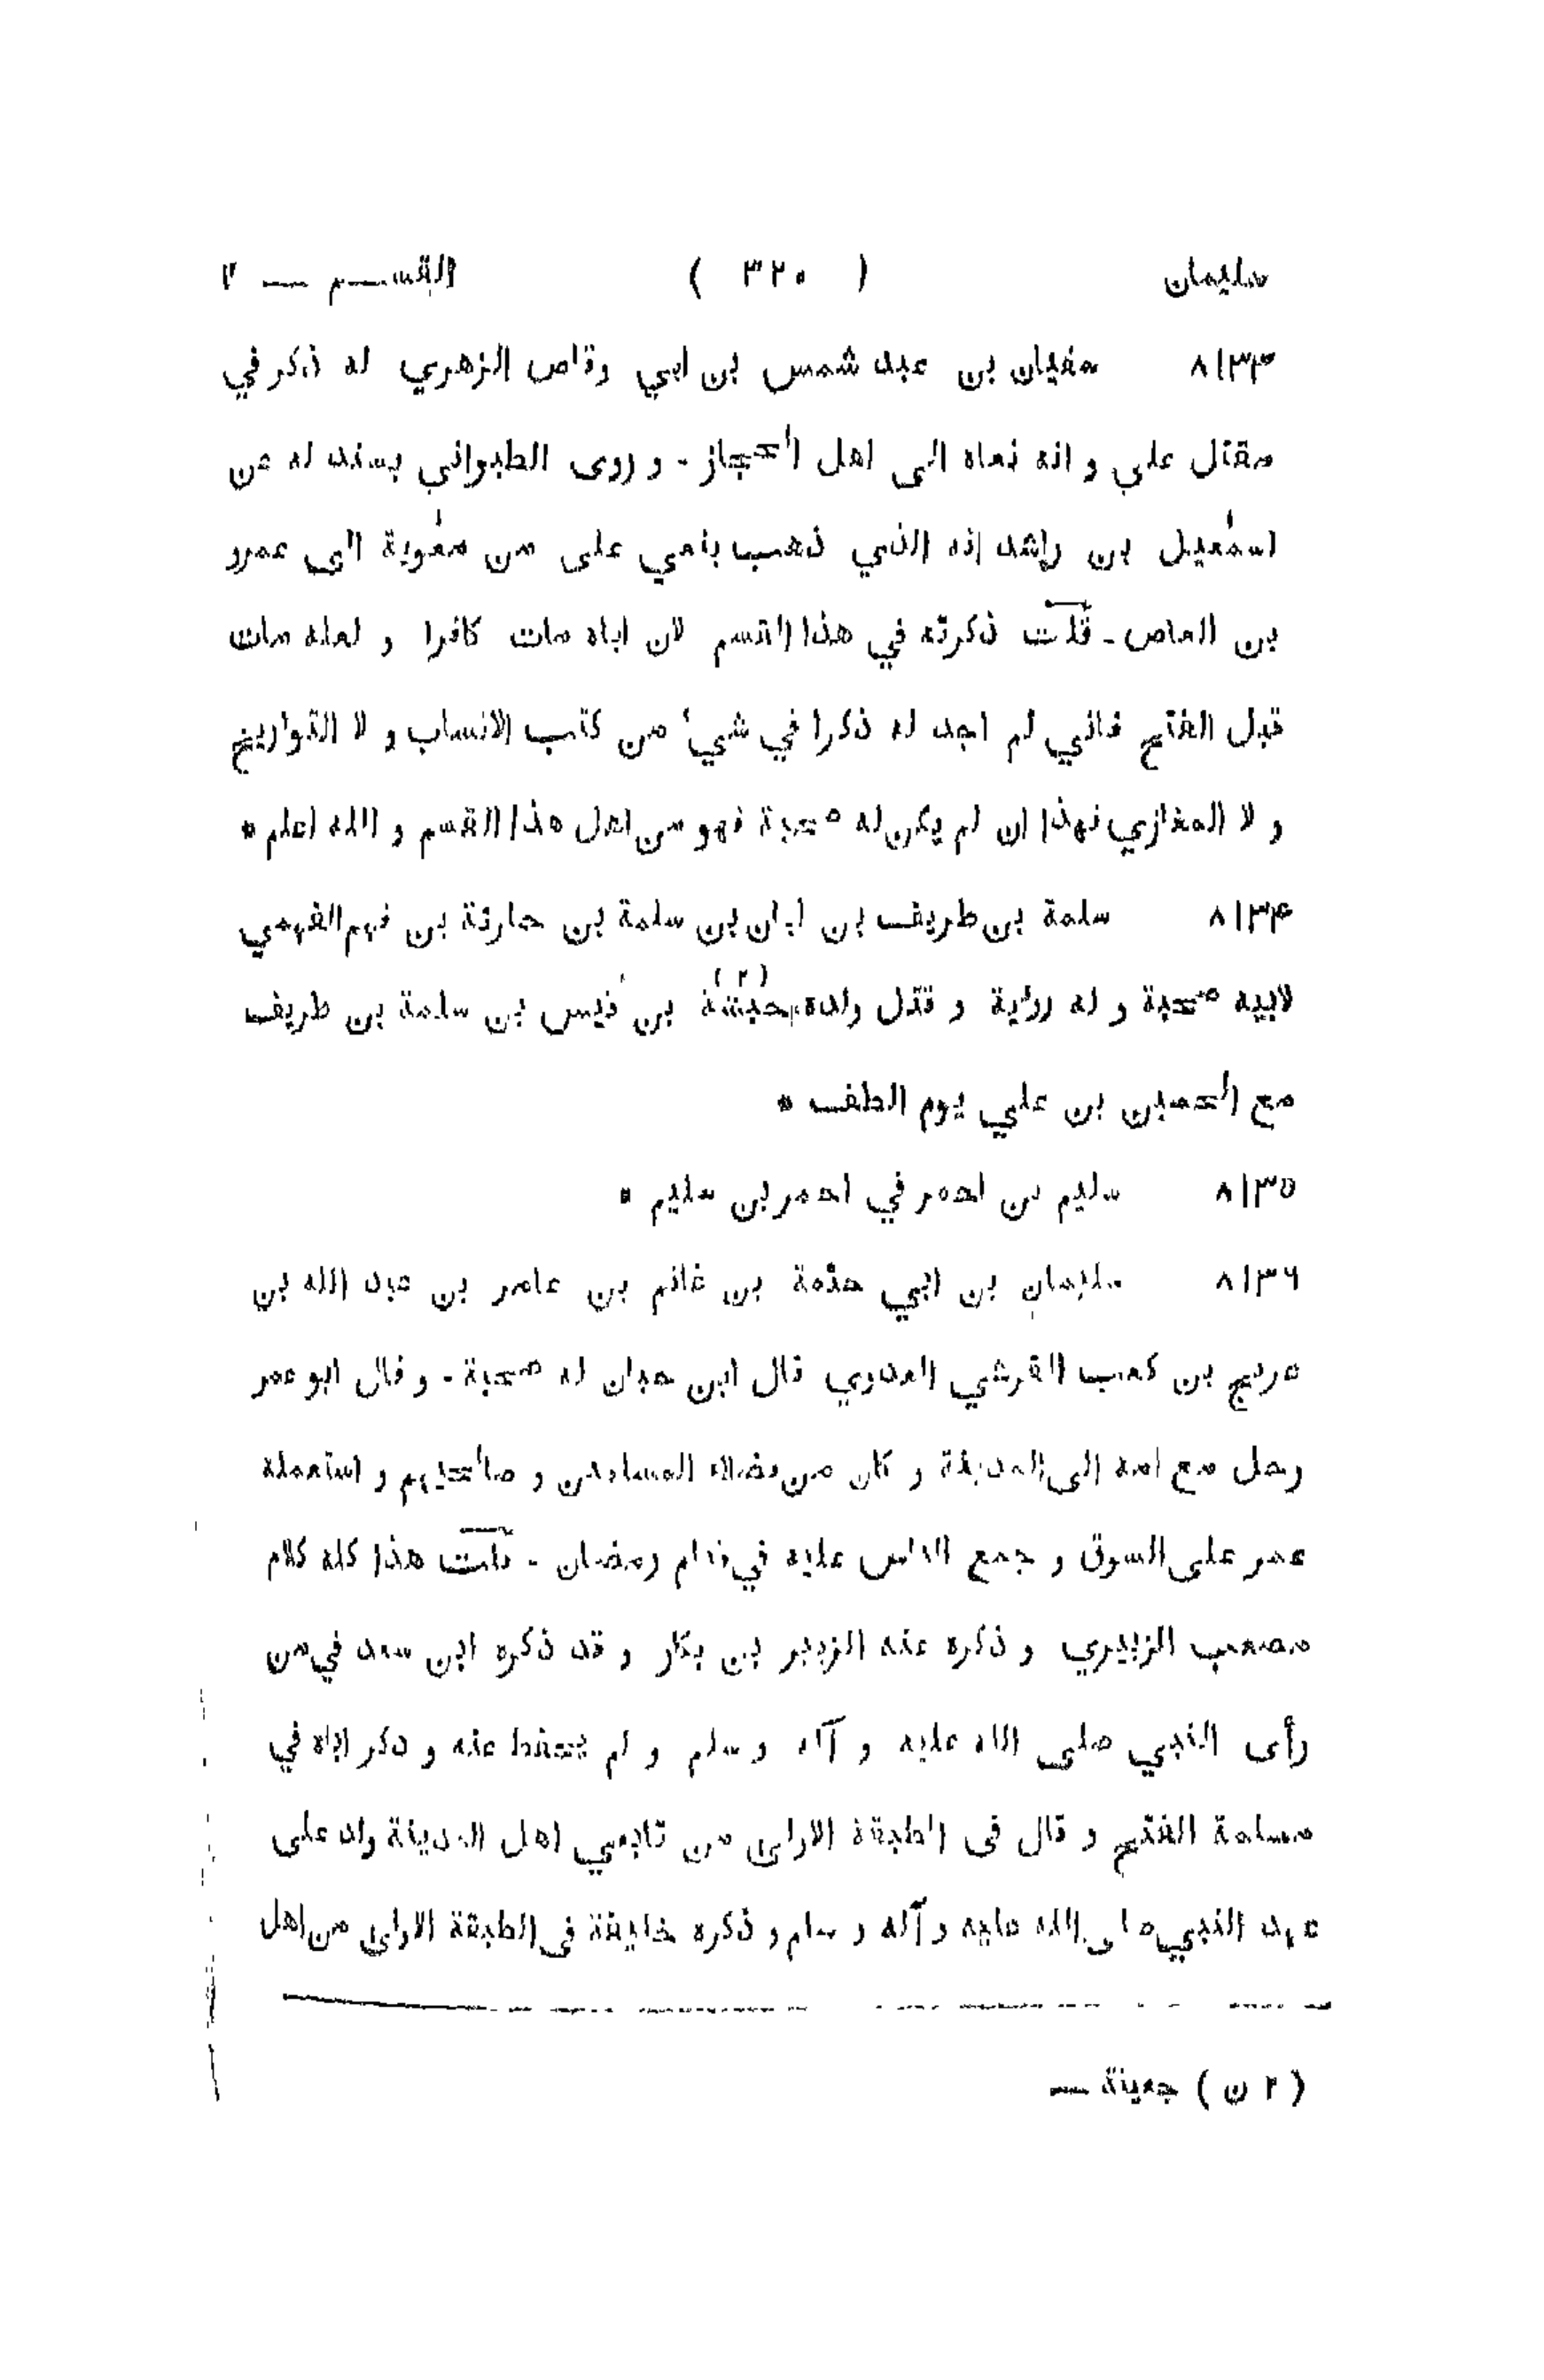 سليمان ( ٣٢٠ ) القسم — ٢
٨١٣٣ سفيان بن عبد شمس بن ابي وقاص الزهري له ذكر في
مقتل علي و انه نعاه الى اهل الحجاز - و روى الطبراني بسند له عن
اسمٰعيل بن راشد انه الذي ذهب بنعي على من معٰوية الى عمرو
بن العاص - قلت ذكرته في هذا القسم لان اباه مات كافرا و لعله مات
قبل الفتح فاني لم اجد له ذكرا في شيء من كتب الانساب و لا التواريخ
و لا المغازي فهذا ان لم يكن له صحبة فهو من اهل هذا القسم و الله اعلم *
٨١٣۴ سلمة بن طريف بن ابان بن سلمة بن حارثة بن فهم الفهمي
لابيه صحبة و له رواية و قتل ولده (٢) بن قيس بن سلمة بن طريف
مع الحسين بن علي يوم الطف *
٨١٣٥ سليم بن احمر في احمر بن سليم *
٨١٣٦ سليمان بن ابي حثمة بن غانم بن عامر بن عبد الله بن
عريج بن كعب القرشي العدوي قال ابن حبان له صحبة - و قال ابو عمر
رحل مع امه الى المدينة و كان من فضلاء المسلمين و صالحيهم و استعمله
عمر على السوق و جمع الناس عليه في قيام رمضان - قلت هذا كله كلام
مصعب الزبيري و ذكره عنه الزبير بن بكار و قد ذكره ابن سعد في من
رأى النبي صلى الله عليه و آله و سلم و لم يحفظ عنه و ذكر اباه في
مسلمة الفتح و قال فى الطبقة الاولى من تابعي اهل المدينة ولد على
عهد النبي صلى الله عليه و آله و سلم و ذكره خليفة فى الطبقة الاولى من اهل
( ٢ ن ) جعينة —